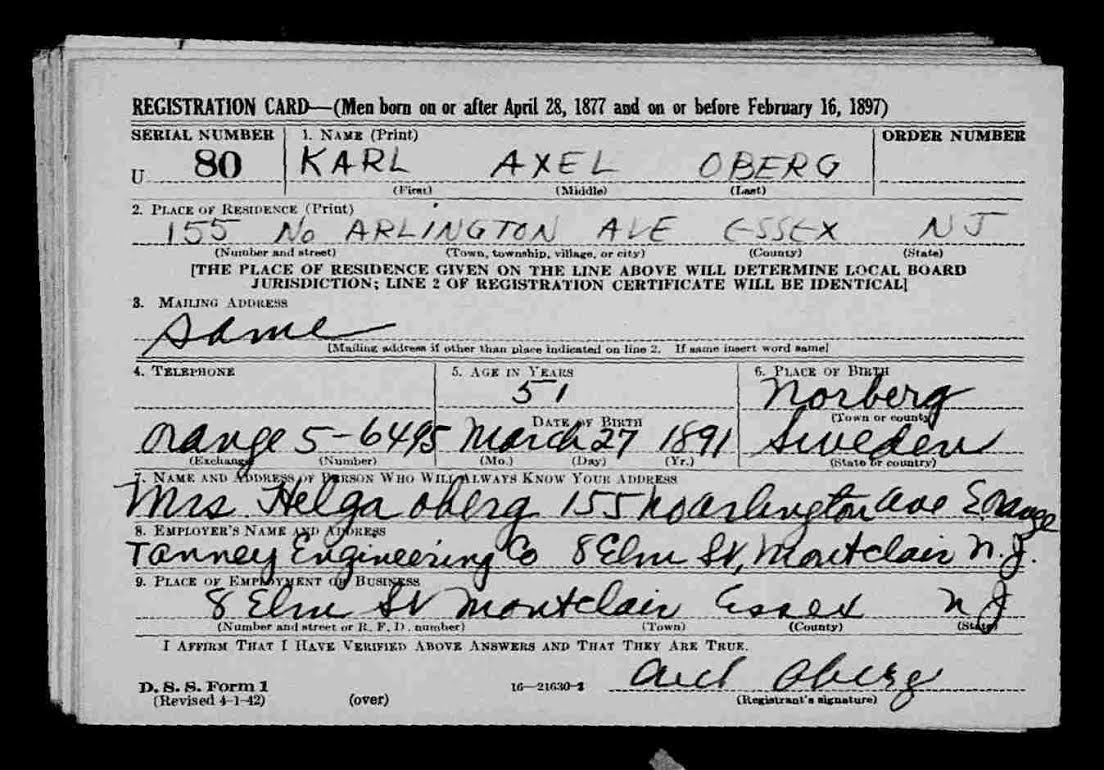 REGISTRATION CARD—(Men born on or after April 28, 1877 and on or before February 16, 1897)
SERIAL NUMBER 1. NAME (Print) ORDER NUMBER
U 80 KARL AXEL OBERG
(First) (Middle) (Last)
2. PLACE OF RESIDENCE (Print)
155 No ARLINGTON AVE ESSEX NJ
(Number and street) (Town, township, village, or city) (County) (State)
[THE PLACE OF RESIDENCE GIVEN ON THE LINE ABOVE WILL DETERMINE LOCAL BOARD
JURISDICTION; LINE 2 OF REGISTRATION CERTIFICATE WILL BE IDENTICAL]
3. MAILING ADDRESS
Same
[Mailing address if other than place indicated on line 2. If same insert word same]
4. TELEPHONE 5. AGE IN YEARS 6. PLACE OF BIRTH
51 Norberg
DATE OF BIRTH (Town or county)
Orange 5-6495 March 27 1891 Sweden
(Exchange) (Number) (Mo.) (Day) (Yr.) (State or country)
7. NAME AND ADDRESS OF PERSON WHO WILL ALWAYS KNOW YOUR ADDRESS
Mrs Helga Oberg 155 No Arlington Ave E. Orange
8. EMPLOYER'S NAME AND ADDRESS
Tanney Engineering Co 8 Elm St, Montclair N.J.
9. PLACE OF EMPLOYMENT OR BUSINESS
8 Elm St Montclair Essex NJ
(Number and street or R. F. D. number) (Town) (County) (State)
I AFFIRM THAT I HAVE VERIFIED ABOVE ANSWERS AND THAT THEY ARE TRUE.
Axel Oberg
D. S. S. Form 1 16—21630-2
(Revised 4-1-42) (over) (Registrant's signature)